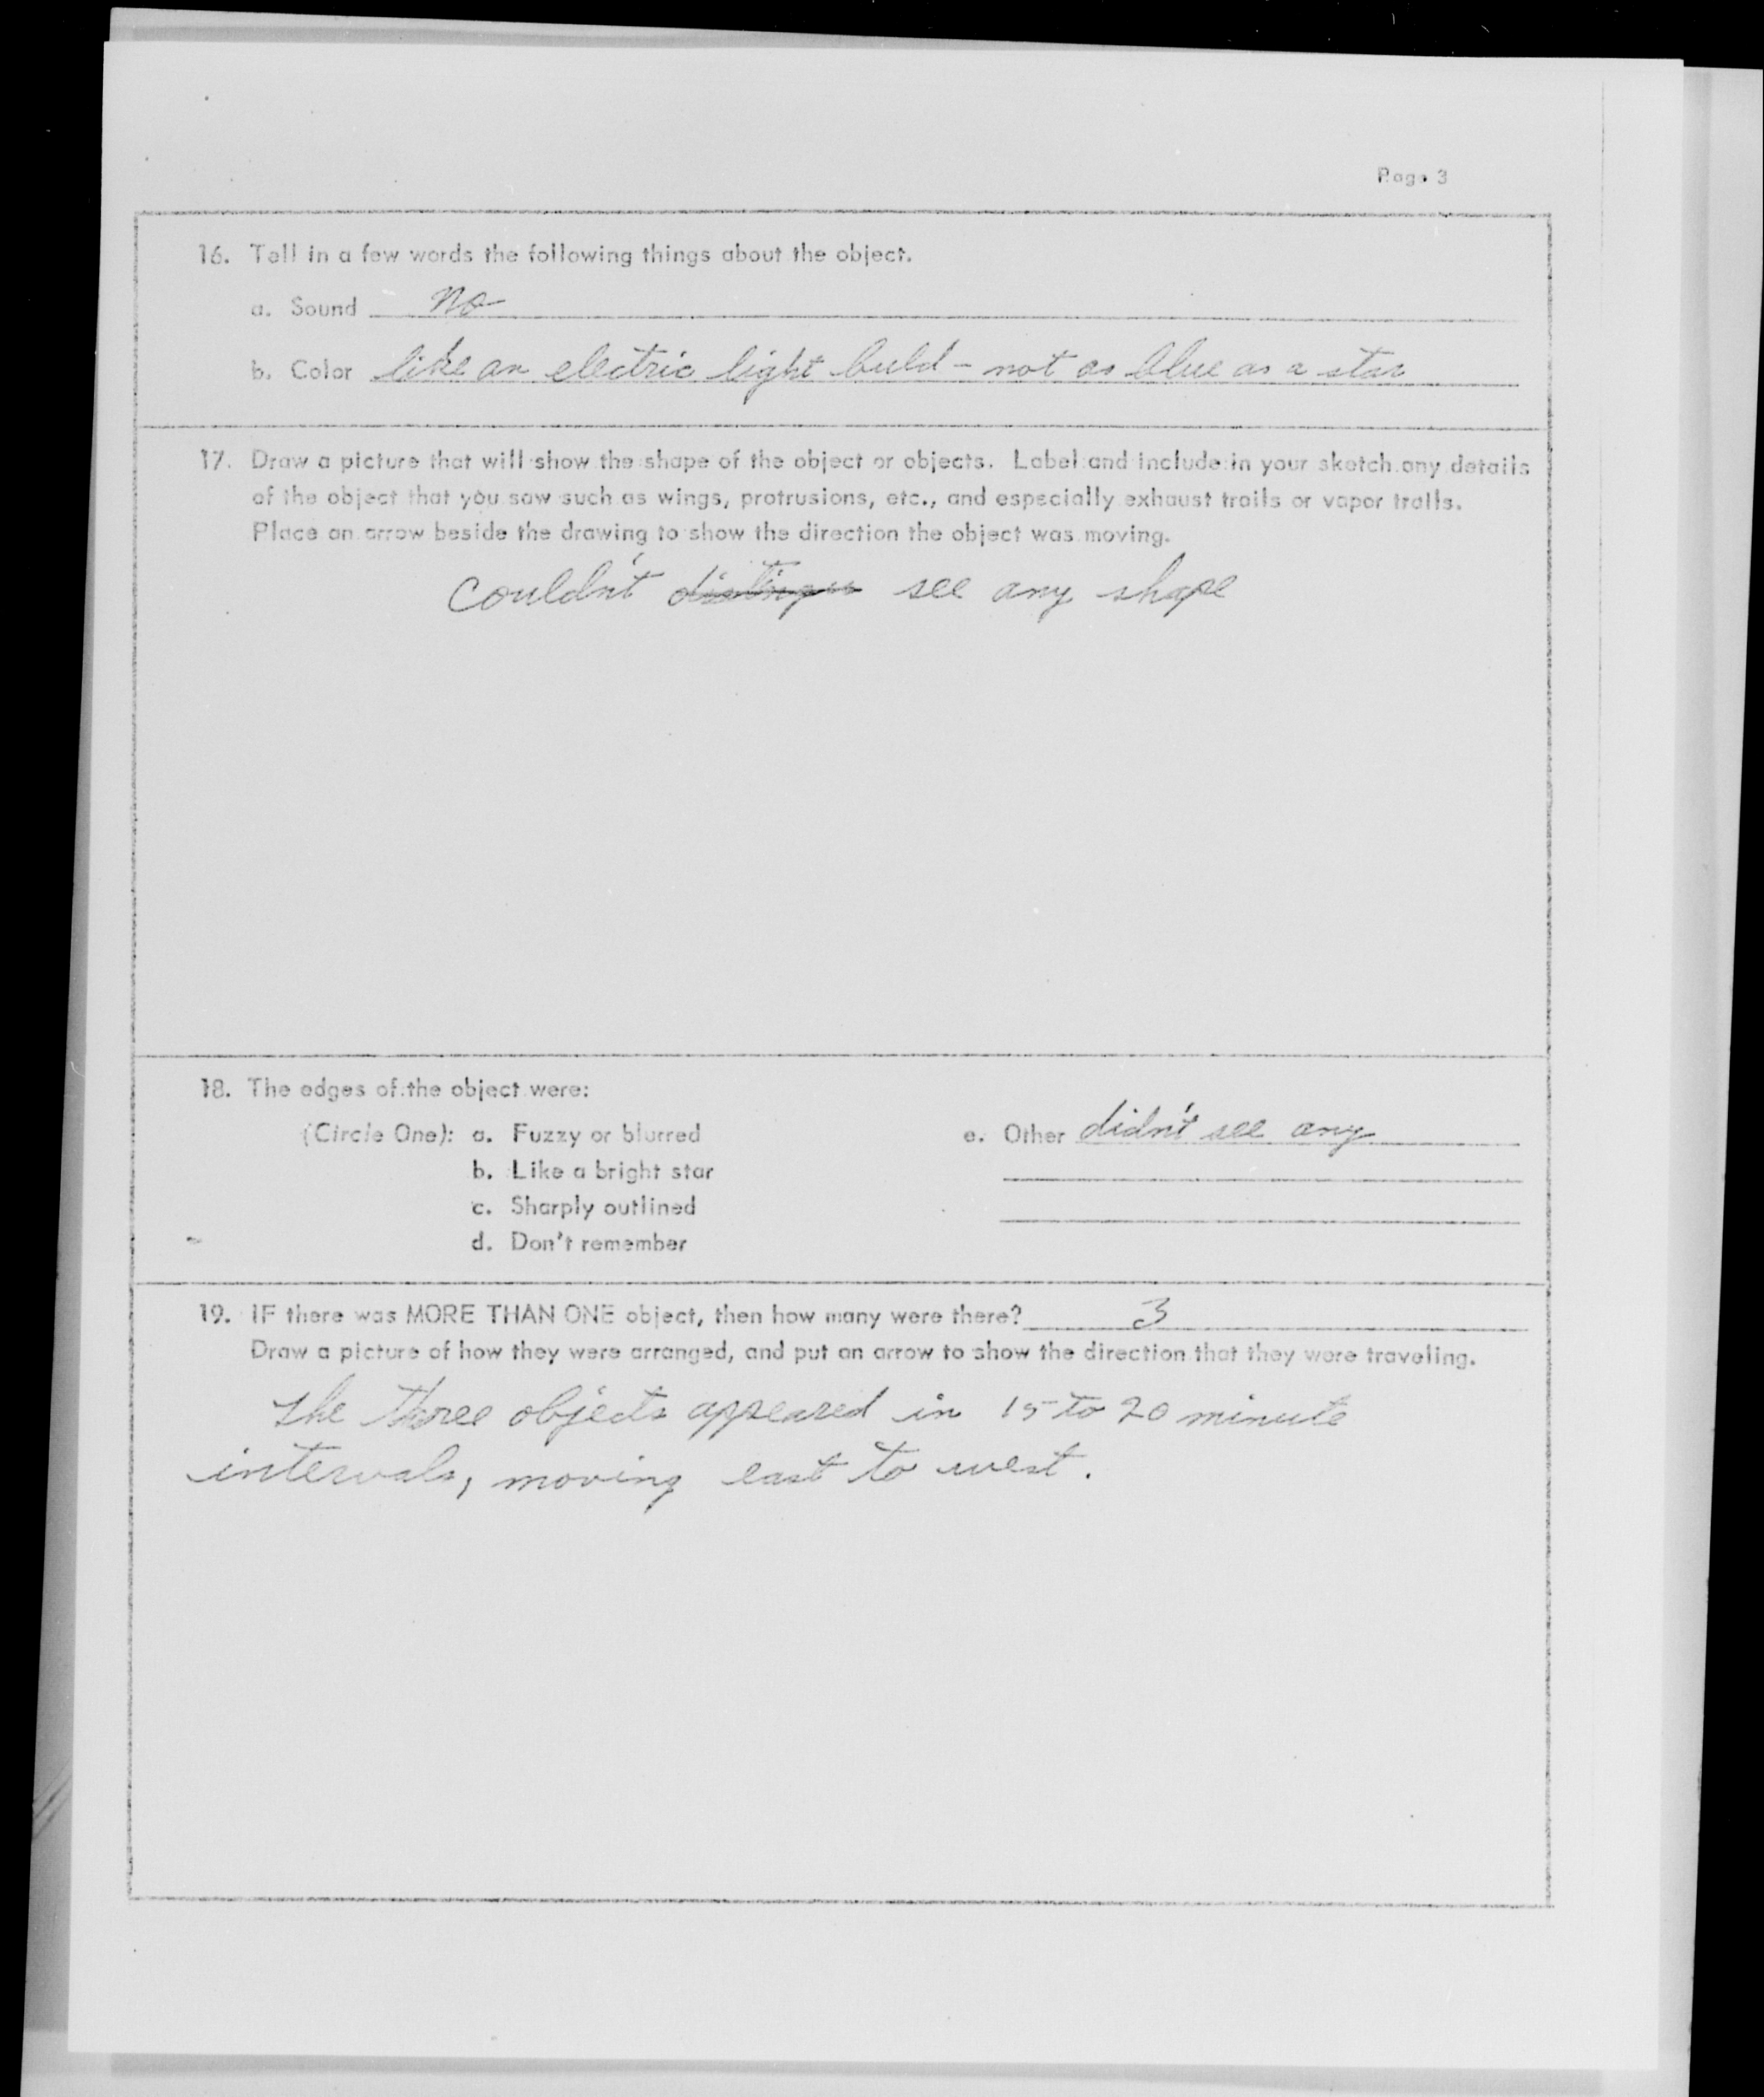 Page 3
16. Tell in a few words the following things about the object.
a. Sound no
b. Color like an electric light buld - not as blue as a star
17. Draw a picture that will show the shape of the object or objects. Label and include in your sketch any details
of the object that you saw such as wings, protrusions, etc., and especially exhaust trails or vapor trails.
Place an arrow beside the drawing to show the direction the object was moving.
Couldn't distingu see any shape
18. The edges of the object were:
(Circle One): a. Fuzzy or blurred
b. Like a bright star
c. Sharply outlined
d. Don't remember
e. Other didn't see any
19. IF there was MORE THAN ONE object, then how many were there? 3
Draw a picture of how they were arranged, and put an arrow to show the direction that they were traveling.
The three objects appeared in 15 to 20 minute
intervals, moving east to west.